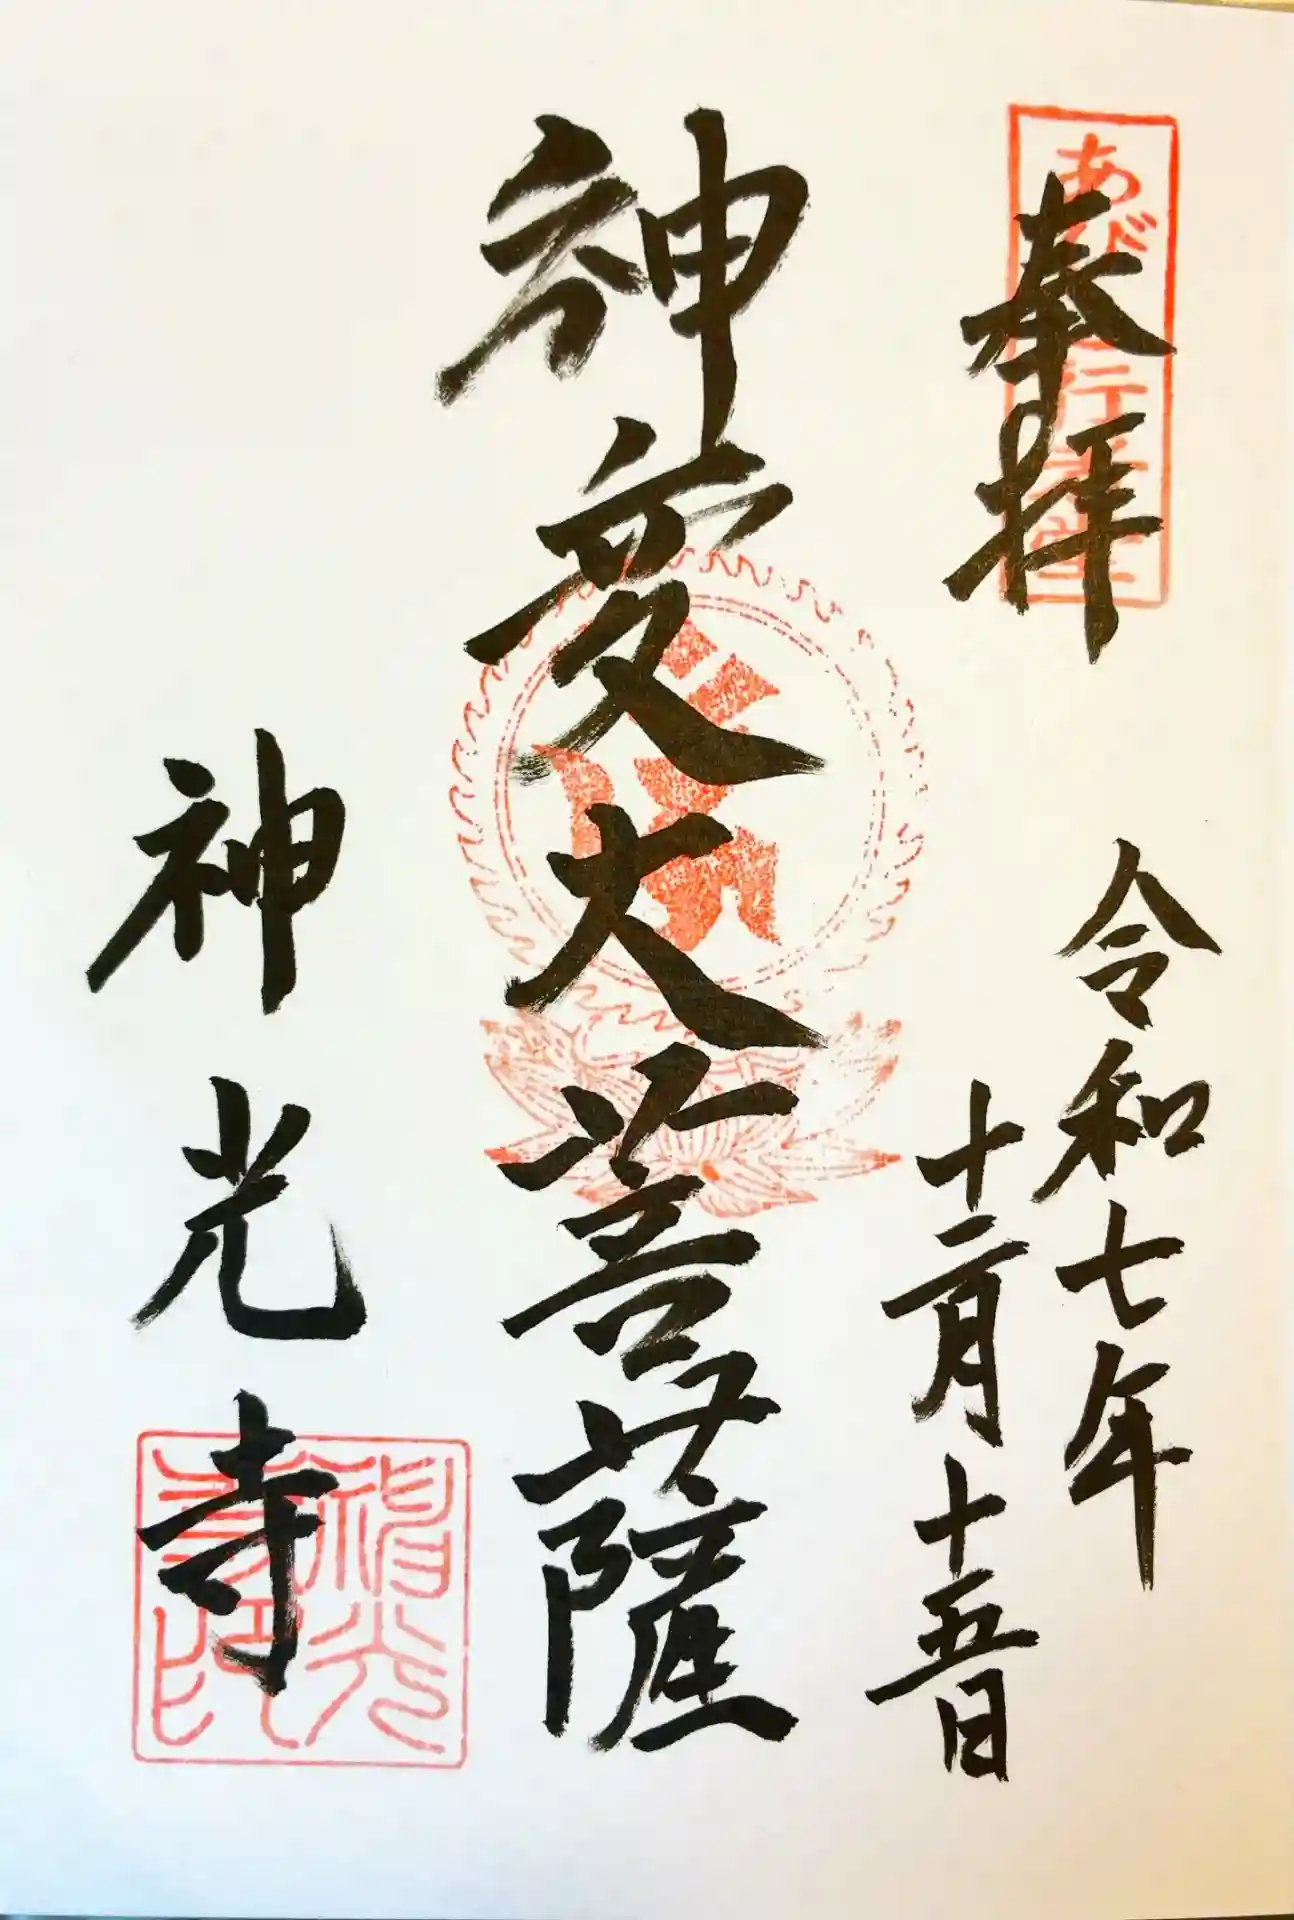 あび 行者堂
奉拝
令和七年
十二月十五日
神変大菩薩
神光寺
神光
寺印